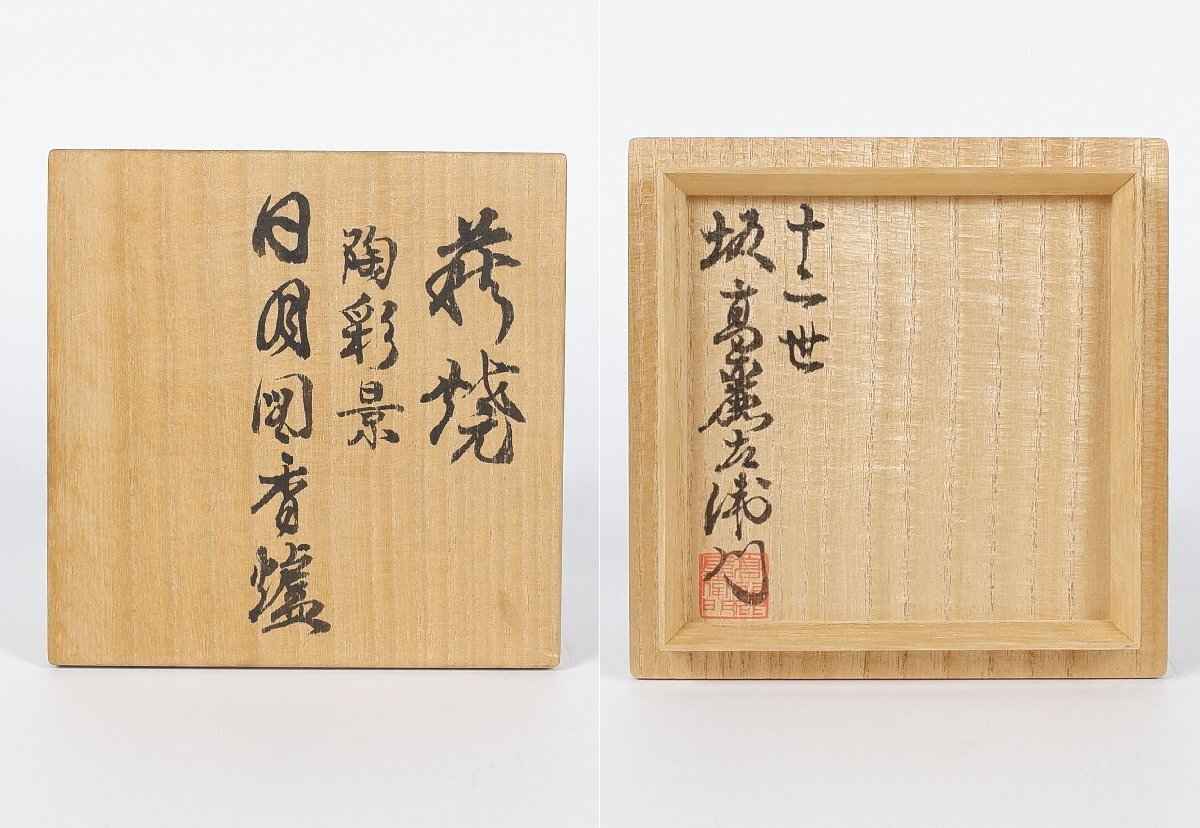 萩燒
陶彩景
日月図香爐
十二世
坂高麗左衛門